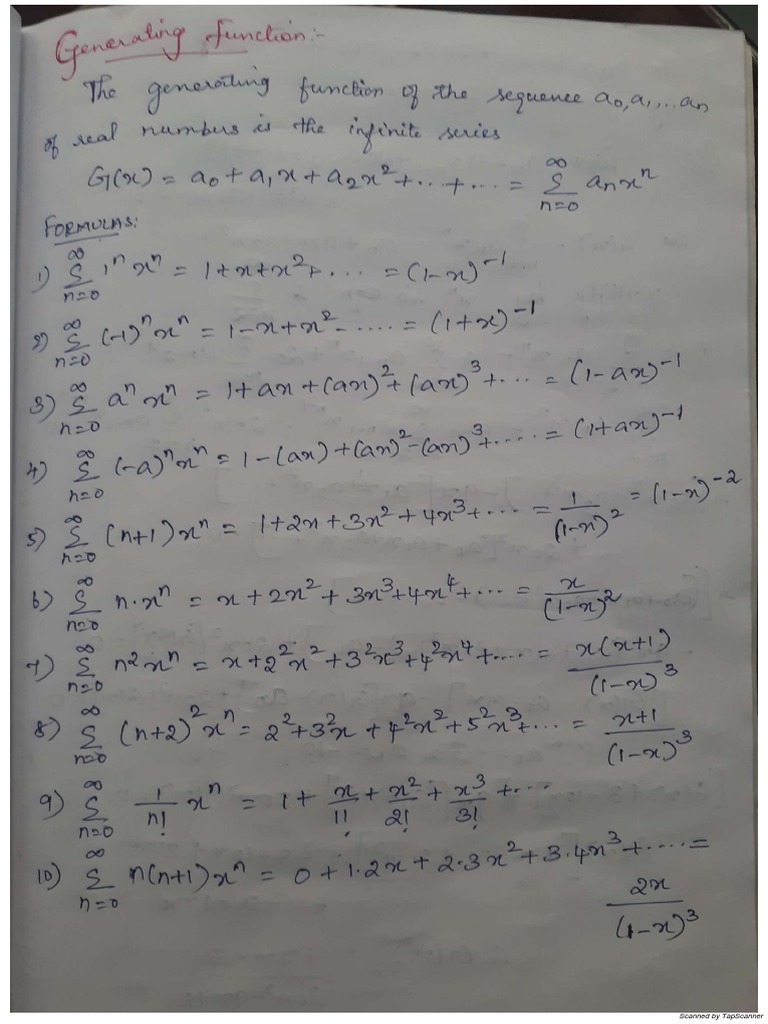 Generating function:-
The generating function of the sequence a₀, a₁, ... aₙ
of real numbers is the infinite series
G(x) = a₀ + a₁x + a₂x² + ... + ... = ∞Σn=0 aₙxⁿ
FORMULAS:
1) ∞Σn=0 1ⁿ xⁿ = 1 + x + x² + ... = (1-x)⁻¹
2) ∞Σn=0 (-1)ⁿ xⁿ = 1 - x + x² - .... = (1+x)⁻¹
3) ∞Σn=0 aⁿ xⁿ = 1 + ax + (ax)² + (ax)³ + ... = (1-ax)⁻¹
4) ∞Σn=0 (-a)ⁿ xⁿ = 1 - (ax) + (ax)² - (ax)³ + .... = (1+ax)⁻¹
5) ∞Σn=0 (n+1) xⁿ = 1 + 2x + 3x² + 4x³ + ... = 1/(1-x)² = (1-x)⁻²
6) ∞Σn=0 n·xⁿ = x + 2x² + 3x³ + 4x⁴ + ... = x/(1-x)²
7) ∞Σn=0 n²xⁿ = x + 2²x² + 3²x³ + 4²x⁴ + .... = x(x+1)/(1-x)³
8) ∞Σn=0 (n+2)² xⁿ = 2² + 3²x + 4²x² + 5²x³ + ... = x+1/(1-x)³
9) ∞Σn=0 1/n! xⁿ = 1 + x/1! + x²/2! + x³/3! + ...
10) ∞Σn=0 n(n+1) xⁿ = 0 + 1·2x + 2·3x² + 3·4x³ + .... =
2x/(1-x)³
Scanned by TapScanner